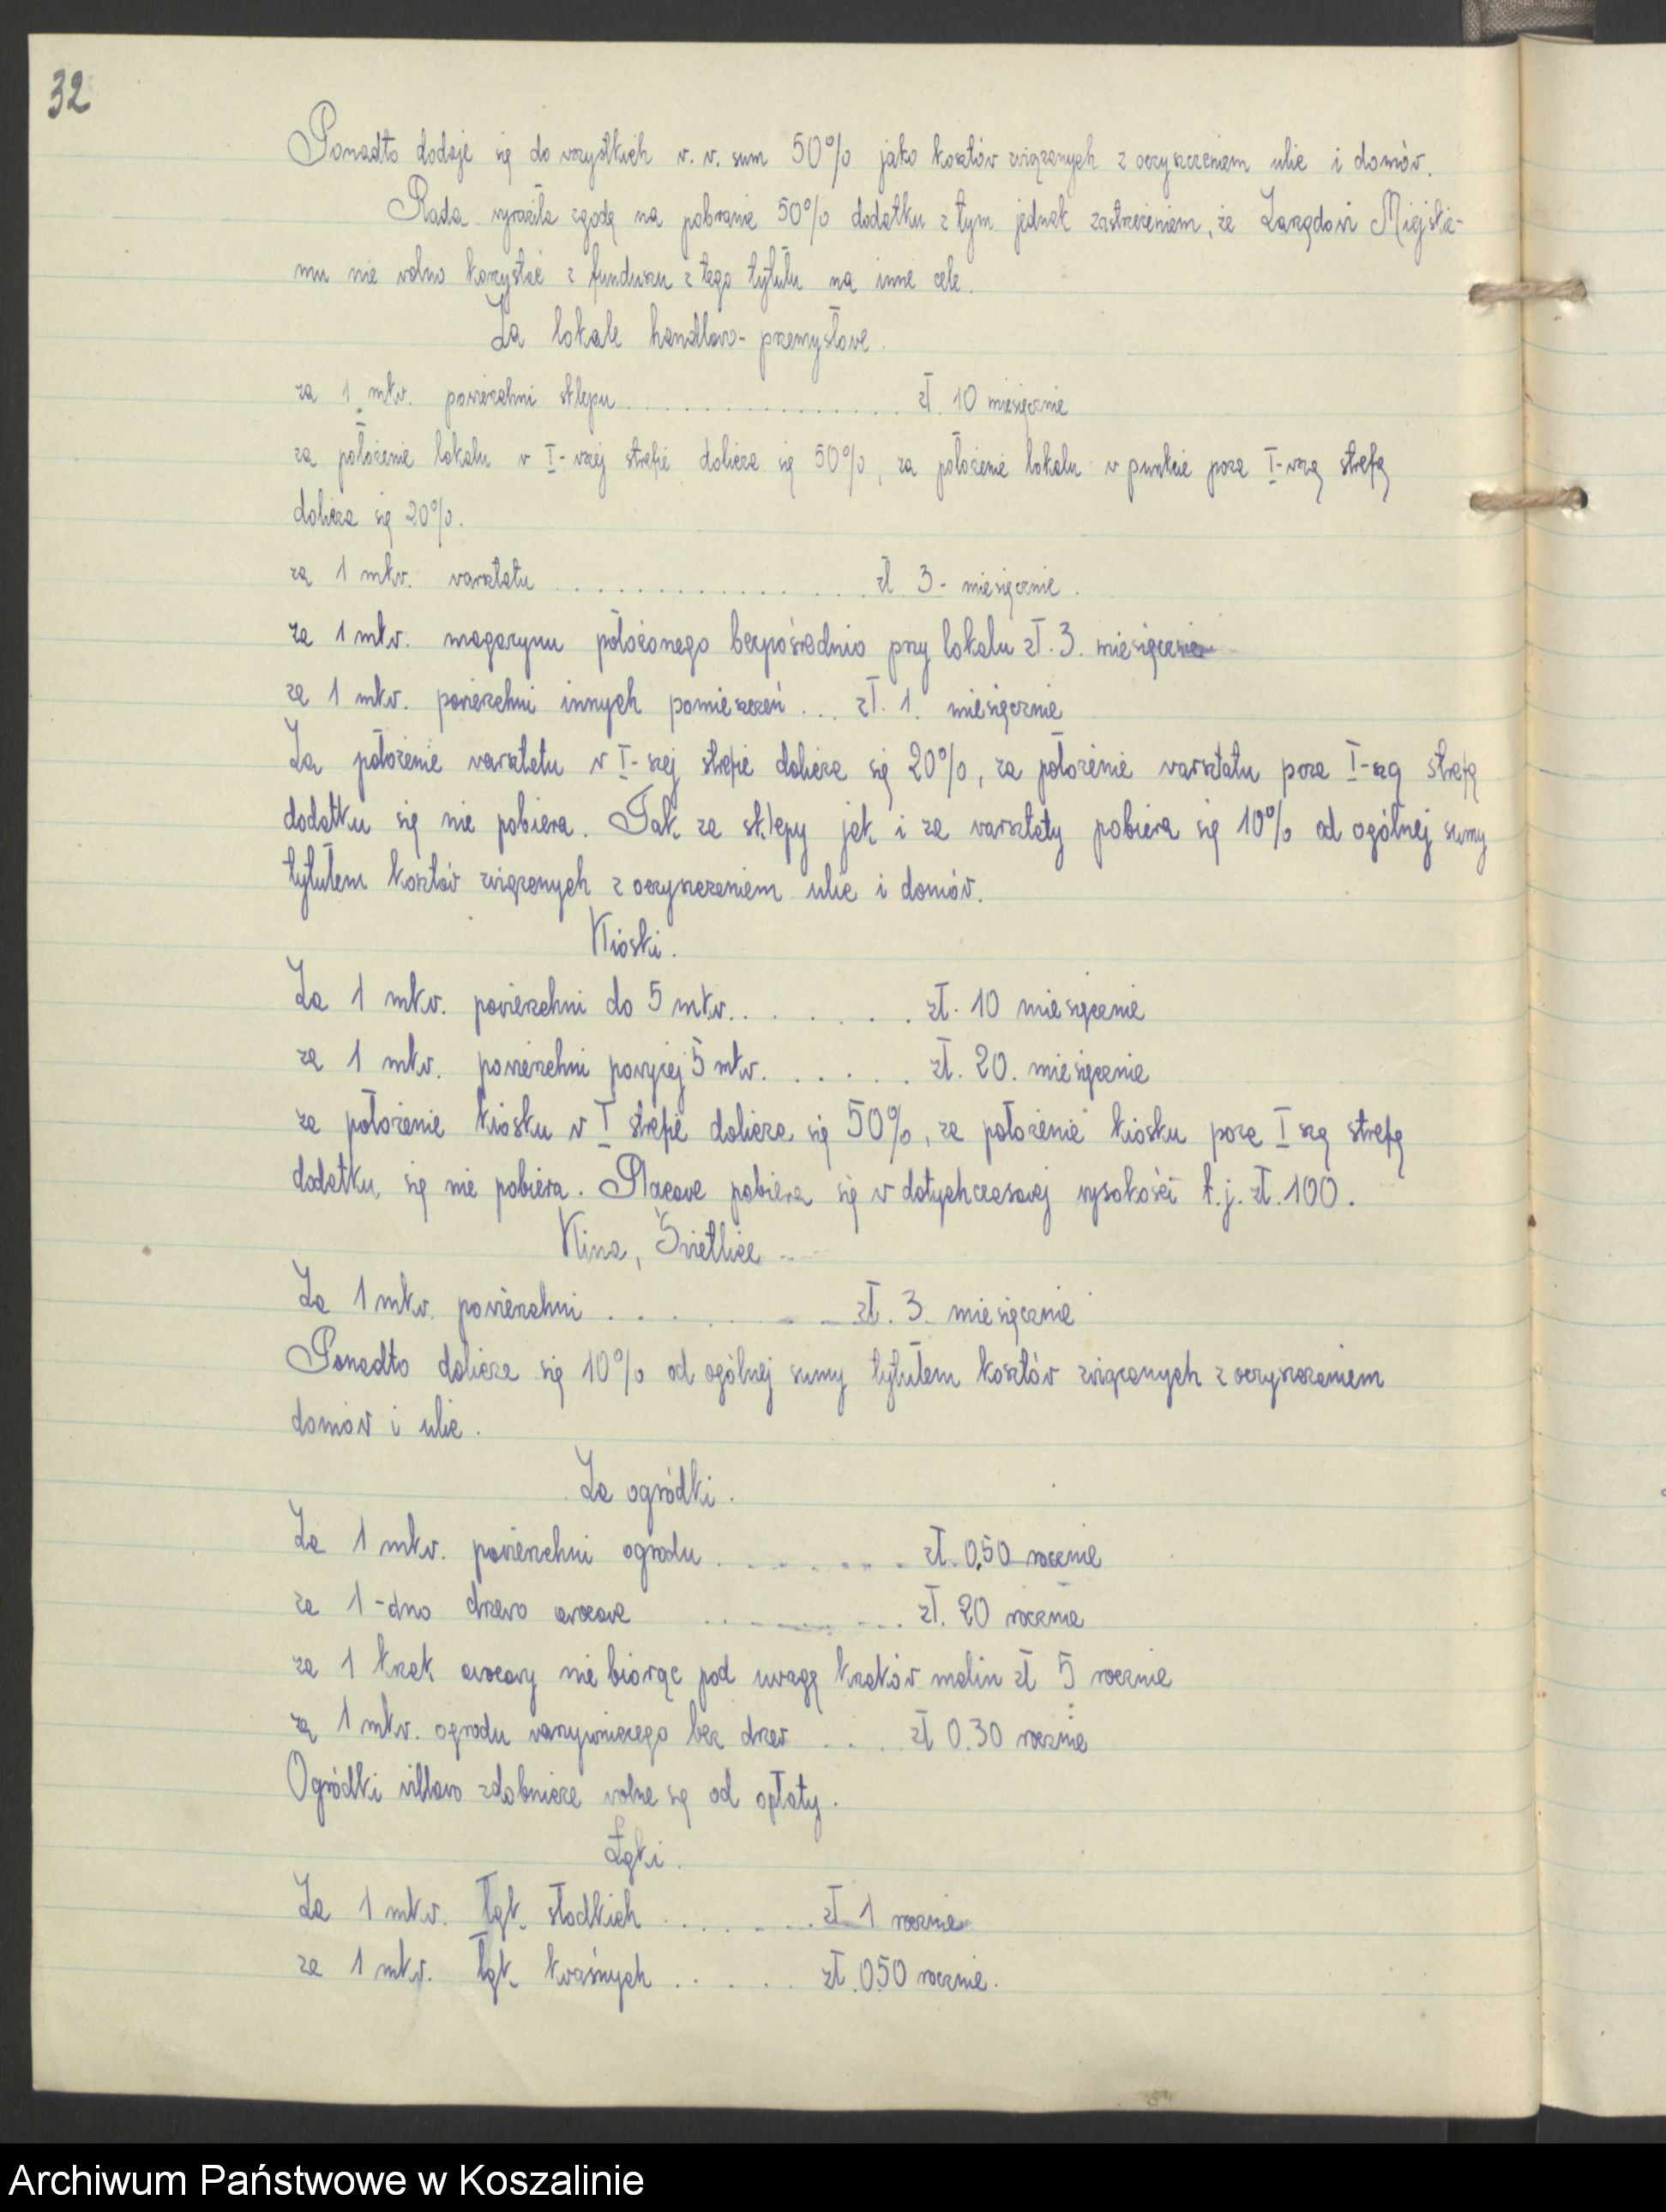 32
Ponadto dodaje się do wszystkich w. w. sum 50% jako kosztów związanych z oczyszczeniem ulic i domów.
Rada wyraziła zgodę na pobranie 50% dodatku z tym jednak zastrzeżeniem, że Zarządowi Miejskie-
mu nie wolno korzystać z funduszu z tego tytułu na inne cele.
Za lokale handlowo-przemysłowe.
za 1 mkw. powierzchni sklepu ................. zł. 10 miesięcznie
za położenie lokalu w I-wszej strefie dolicza się 50%, za położenie lokalu w punkcie poza I-wszą strefą
dolicza się 20%.
za 1 mkw. warsztatu ................. zł. 3- miesięcznie.
za 1 mkw. magazynu położonego bezpośrednio przy lokalu zł. 3. miesięcznie
za 1 mkw. powierzchni innych pomieszczeń ... zł. 1. miesięcznie
Za położenie warsztatu w I-szej strefie dolicza się 20%, za położenie warsztatu poza I-szą strefą
dodatku się nie pobiera. Tak za sklepy jak i za warsztaty pobiera się 10% od ogólnej sumy
tytułem kosztów związanych z oczyszczeniem ulic i domów.
Kioski.
Za 1 mkw. powierzchni do 5 mkw. ....... zł. 10 miesięcznie
za 1 mkw. powierzchni powyżej 5 mkw. ...... zł. 20. miesięcznie
za położenie kiosku w I strefie dolicza się 50%, za położenie kiosku poza I szą strefą
dodatku się nie pobiera. Placowe pobiera się w dotychczasowej wysokości t.j. zł. 100.
Kina, Świetlice
Za 1 mkw. powierzchni ....... zł. 3. miesięcznie
Ponadto dolicza się 10% od ogólnej sumy tytułem kosztów związanych z oczyszczaniem
domów i ulic.
Za ogródki.
Za 1 mkw. powierzchni ogrodu ....... zł. 0,50 rocznie
za 1-dno drzewo owocowe ....... zł. 20 rocznie
za 1 krzak owocowy nie biorąc pod uwagę krzaków malin zł 5 rocznie
za 1 mkw. ogrodu warzywniczego bez drzew .... zł 0.30 rocznie
Ogródki willowo zdobnicze wolne są od opłaty.
Łąki.
Za 1 mkw. łąk słodkich ....... zł 1 rocznie
za 1 mkw. łąk kwaśnych ...... zł. 0.50 rocznie.
Archiwum Państwowe w Koszalinie